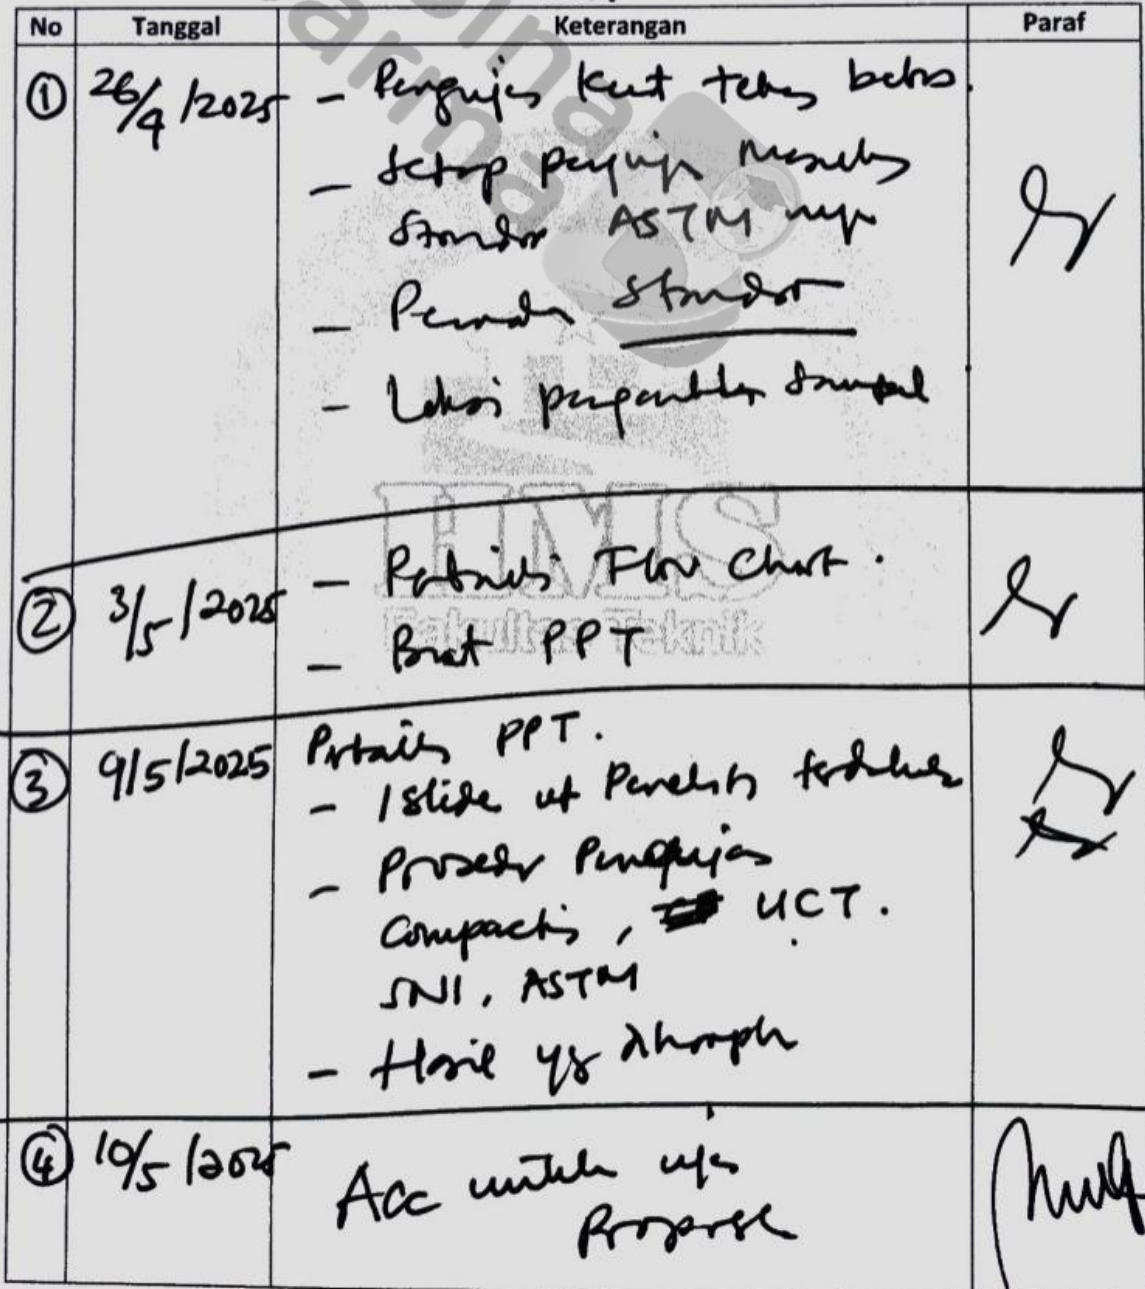 No Tanggal Keterangan Paraf
① 26/4/2025 - Pengujian Kuat tekan bebas.
- Setiap pengujian
Standar ASTM
- Standar
- Lokasi pengambilan Sampel
② 3/5/2025 - Perbaiki Flow Chart.
- Buat PPT
③ 9/5/2025 Perbaiki PPT.
- 1 slide ut Penelitian terdahulu
- Prosedur Pengujian
Compaction, UCT.
SNI, ASTM
- Hasil yg diharapkan
④ 10/5/2025 Acc untuk ujian
Proposal
bina
darma
HMS
Fakultas Teknik